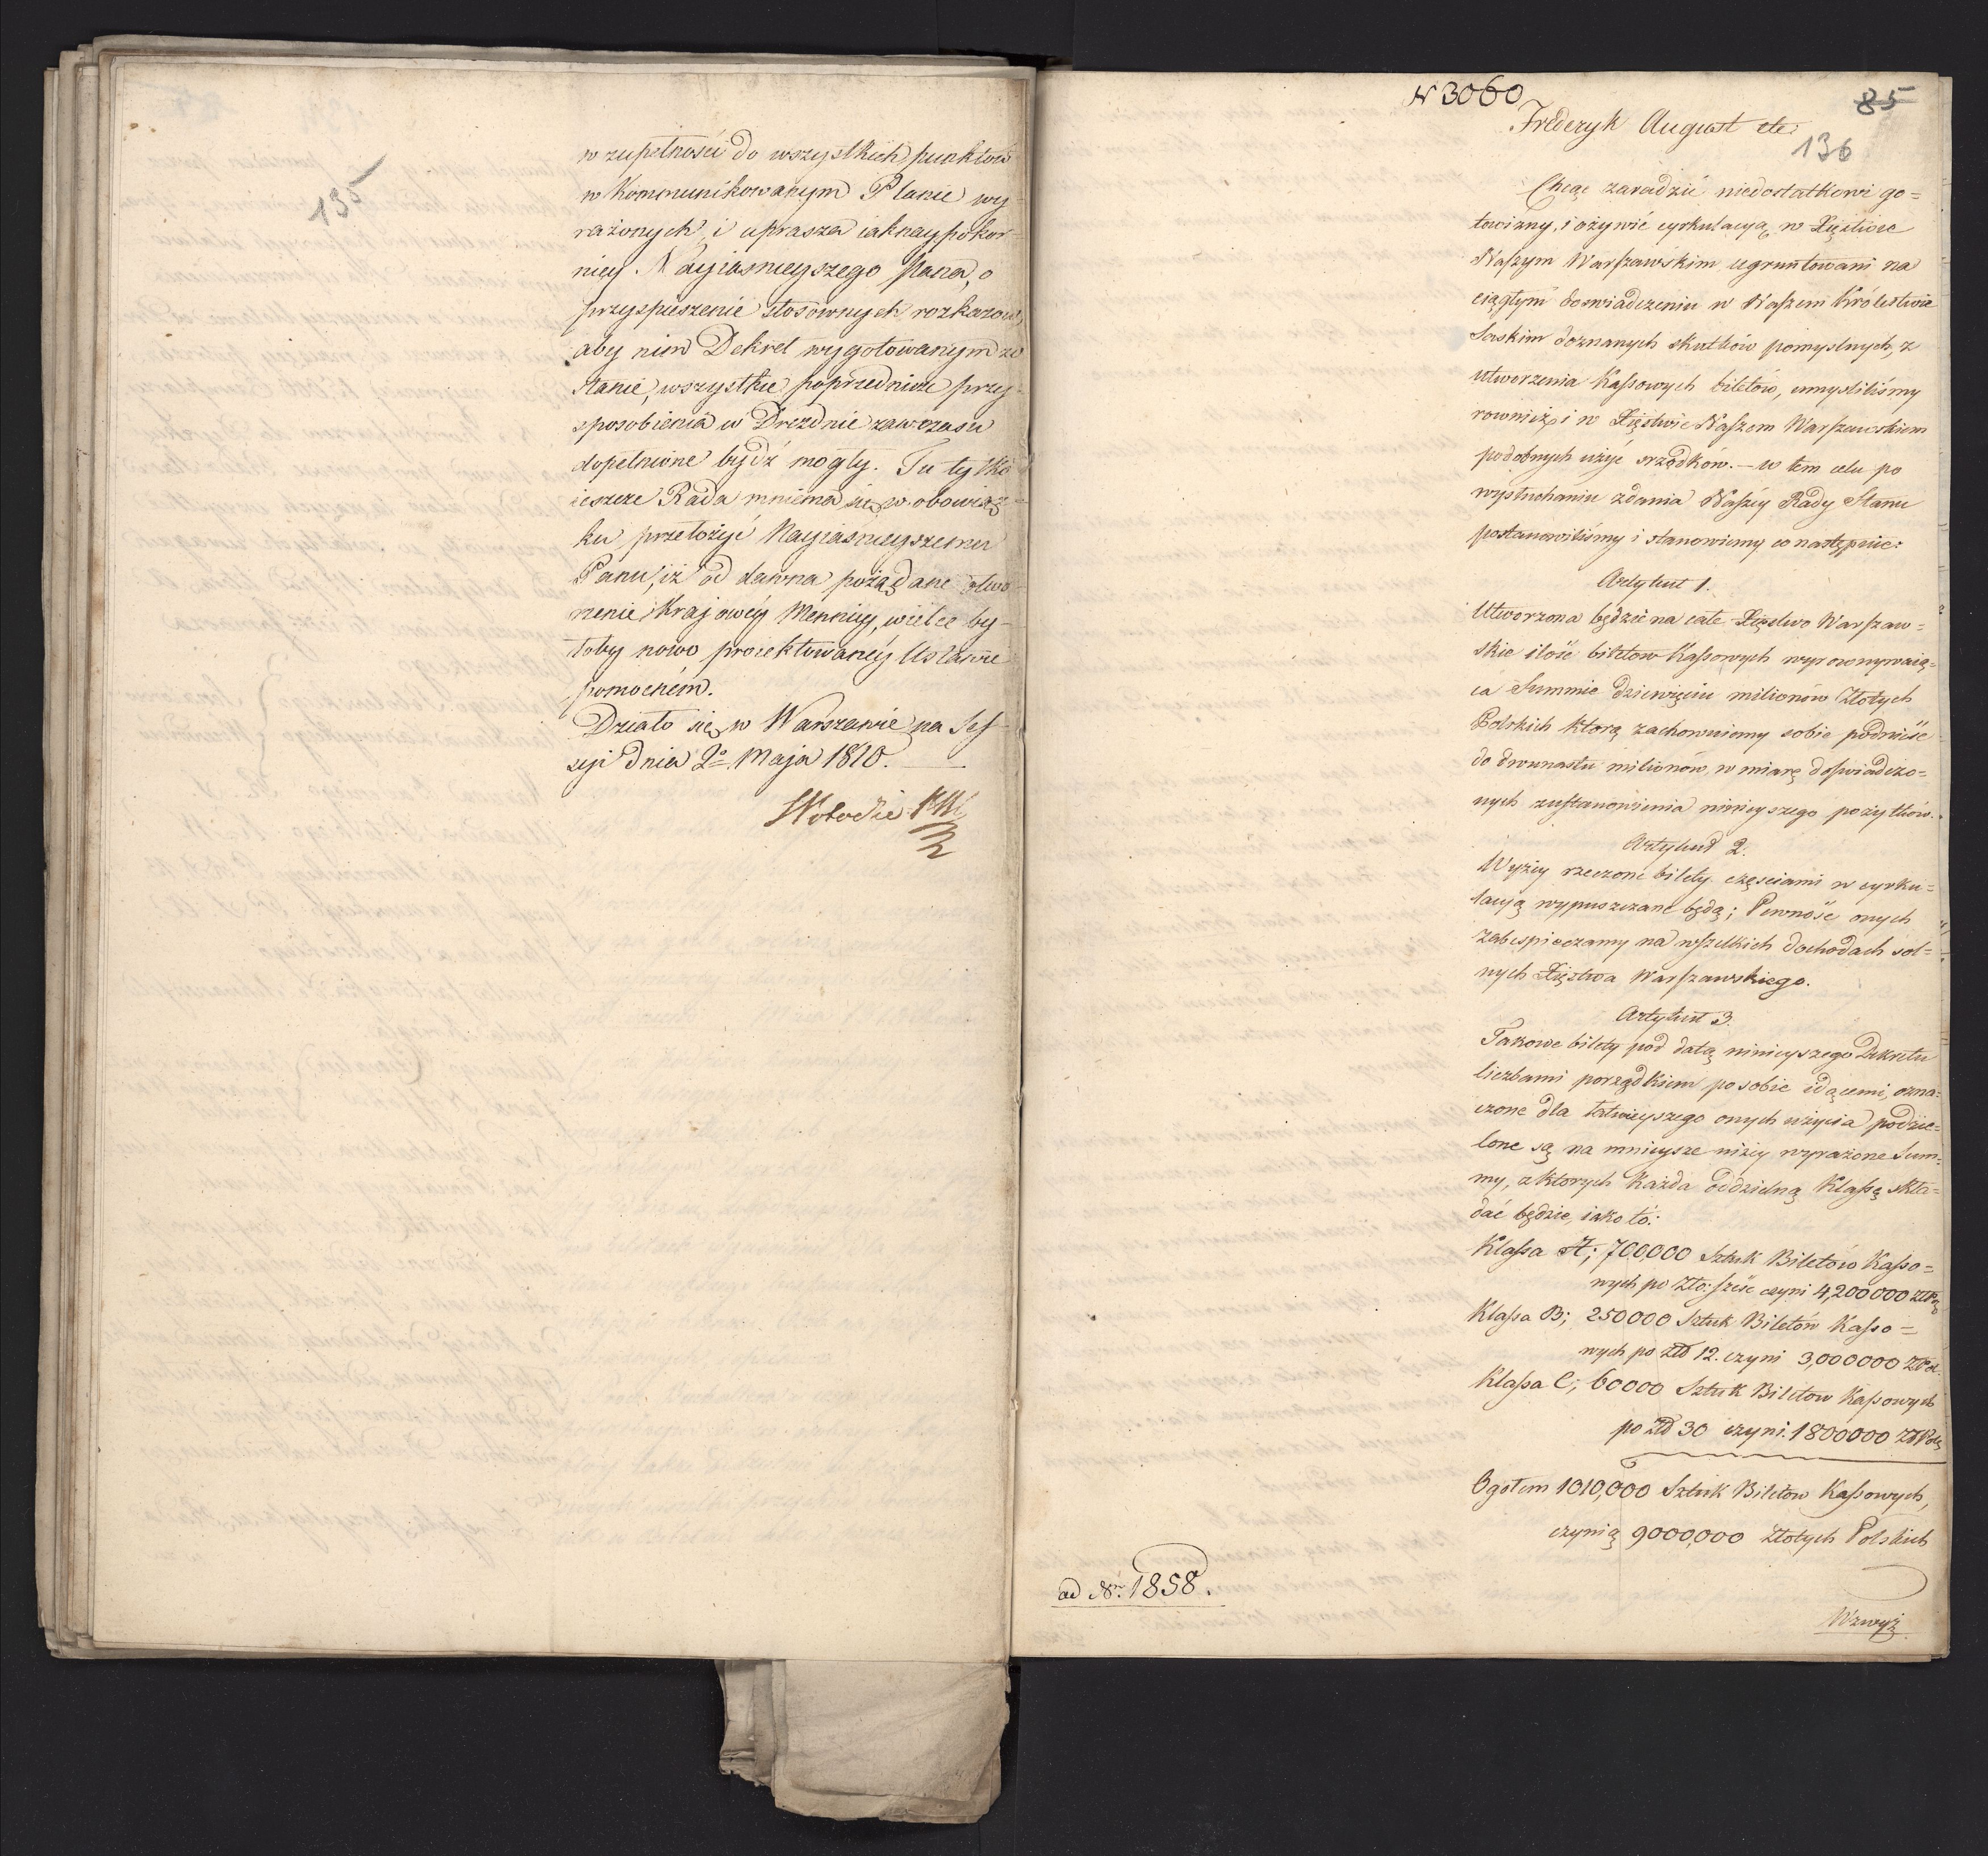 135
w zupełności do wszystkich punktów
w Kommunikowanym Planie wy-
rażonych, i uprasza iaknaypokor-
niey Nayiasnieyszego Pana, o
przyspieszenie stosownych rozkazów,
aby nim Dekret wygotowanym zo-
stanie, wszystkie poprzednicze przy-
sposobienia w Dreznie zawczasu
dopełnione bydź mogły. Tu tylko
ieszcze Rada mniema się w obowiąz-
ku przełożyć Nayiaśnieyszemu
Panu, iż od dawna pożądane otwo-
rzenie Krajowéy Mennicy, wielce by-
łoby nowo proiektowanéy Ustawie
pomocném.
Działo się w Warszawie na Ses-
syi dnia 2º Maja 1810.
N 3060
85
Frideryk August etc:
136
Chcąc zaradzić niedostatkowi go=
towizny, i ożywić cyrkulacyą w Xięstwie
Naszym Warszawskim ugruntowani na
ciągłym doswiadczeniu w Naszem Królestwie
Saskim doznanych skutków pomyslnych, z
utworzenia Kassowych biletów, umysliliśmy
rownież i w Xięstwie Naszem Warszawskiem
podobnych użyć srzodków. – w tem celu po
wysłuchaniu zdania Naszéy Rady Stanu
postanowiliśmy i stanowimy co następuie:
Artykuł 1.
Utworzona będzie na całe Xięstwo Warszaw=
skie ilość biletow Kassowych wyrownywaią=
ca Summie dziewięciu milionów Złotych
Polskich którą zachowuiemy sobie podnieść
do dwunastu milionów, w miarę doświadczo=
nych zustanowienia ninieyszego pożytków.
Artykuł 2.
Wyżey rzeczone bilety częsciami w cyrku=
lacyą wypuszczane będą; Pewność onych
zabespieczamy na wszelkich dochodach sol=
nych Xięstwa Warszawskiego.
Artykuł 3.
Takowe bilety pod datą ninieyszego Dekretu
liczbami porządkiem po sobie idącemi, ozna=
czone dla łatwieyszego onych użycia podzie=
lone są na mnieysze niżey wyrażone Sum=
my, z ktorych każda oddzielną Klassę skła=
dać będzie, iako to:
Klassa A; 700,000 Sztuk Biletów Kasso=
wych po Zło: sześć czyni 4,200000 ZłPol
Klassa B; 250000 Sztuk Biletów Kasso=
wych po Zło 12. czyni 3,000000 ZłPol.
Klassa C; 60000 Sztuk Biletow Kassowych
po Zło 30 czyni. 1800000 ZłPol
Ogołem 1010,000 Sztuk Biletow Kassowych,
czynią 9000,000 Złotych Polskich
ad Nr. 1858.
Wzwyż